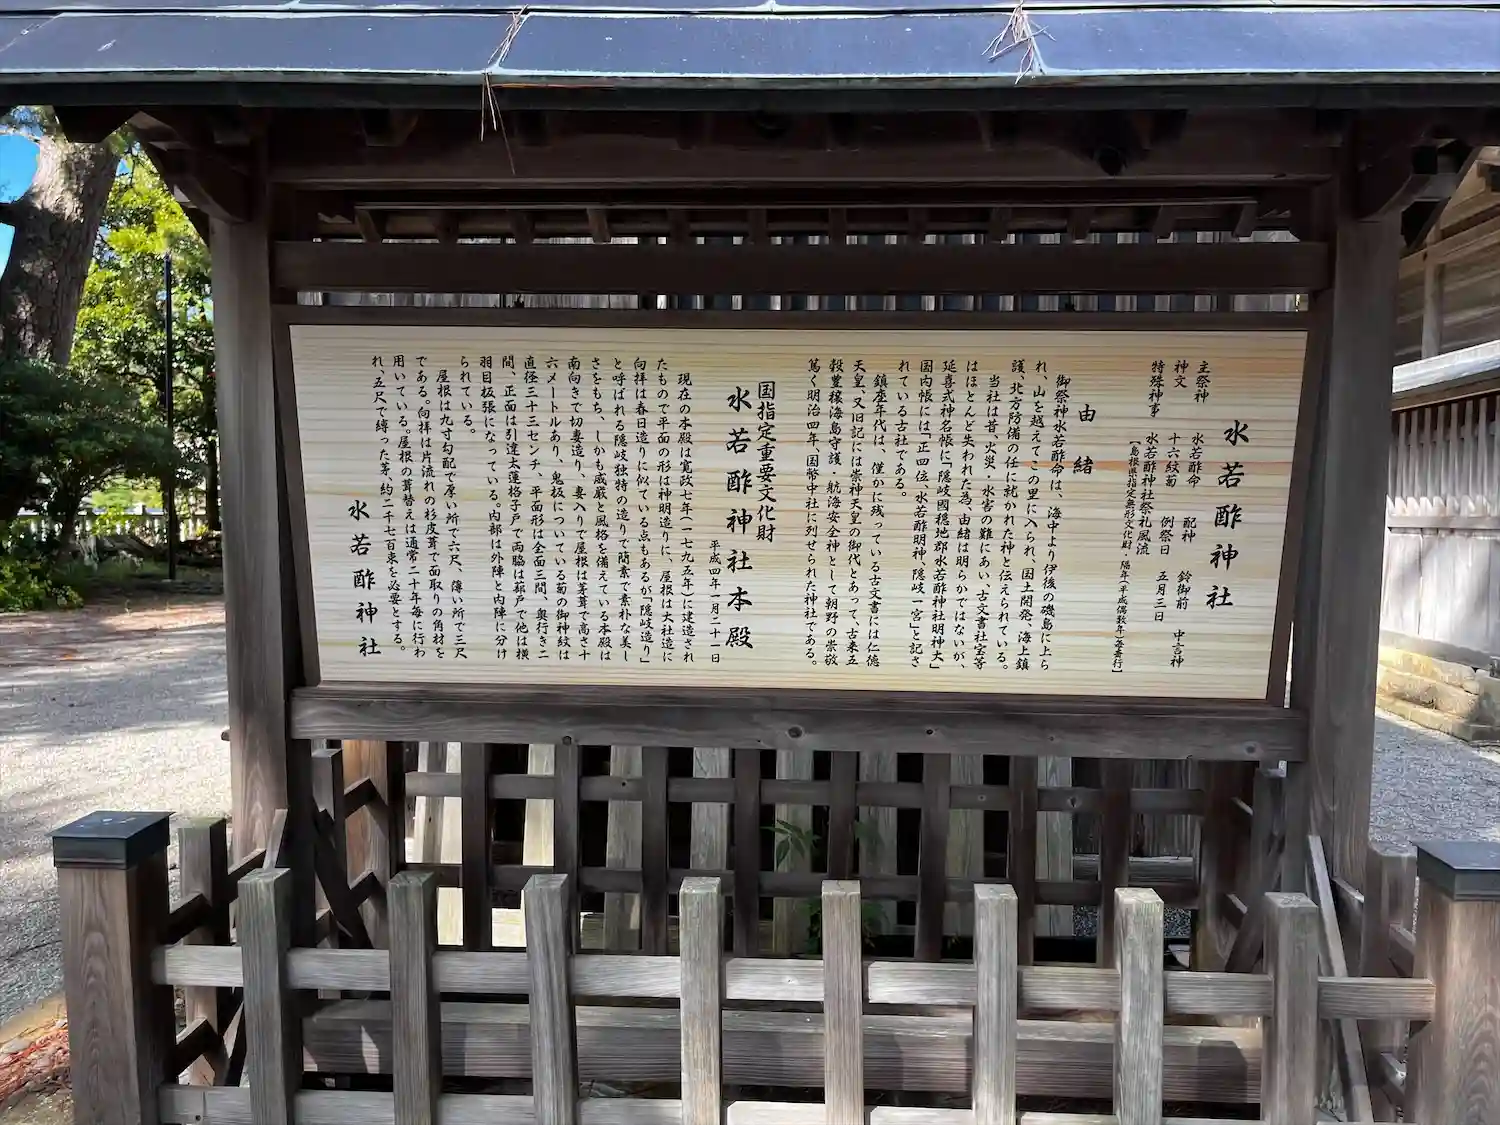 水若酢神社
主祭神　水若酢命　配神　鈴御前　中言神
神文　十六紋菊　例祭日　五月三日
特殊神事　水若酢神社祭礼風流
【島根県指定無形文化財・隔年（平成偶数年）毎奉行】
由緒
御祭神水若酢命は、海中より伊後の磯島に上ら
れ、山を越えてこの里に入られ、国土開発、海上鎮
護、北方防備の任に就かれた神と伝えられている。
当社は昔、火災・水害の難にあい、古文書社宝等
はほとんど失われた為、由緒は明らかではないが、
延喜式神名帳に「隠岐國穏地郡水若酢神社明神大」
国内帳には「正四位、水若酢明神、隠岐一宮」と記さ
れている古社である。
鎮座年代は、僅かに残っている古文書には仁徳
天皇、又旧記には崇神天皇の御代とあって、古来五
穀豊穣海島守護・航海安全神として朝野の崇敬
篤く明治四年、国幣中社に列せられた神社である。
国指定重要文化財
水若酢神社本殿
平成四年一月二十一日
現在の本殿は寛政七年（一七九五年）に建造され
たもので平面の形は神明造りに、屋根は大社造に
向拝は春日造りに似ている点もあるが「隠岐造り」
と呼ばれる隠岐独特の造りで簡素で素朴な美し
さをもち、しかも威厳と風格を備えている本殿は
南向きで切妻造り、妻入りで屋根は茅葺で高さ十
六メートルあり、鬼板についている菊の御神紋は
直径三十三センチ、平面形は全面三間、奥行き二
間、正面は引違太蓮格子戸で両脇は蔀戸で他は横
羽目板張になっている。内部は外陣と内陣に分け
られている。
屋根は九寸勾配で厚い所で六尺、薄い所で三尺
である。向拝は片流れの杉皮葺で面取りの角材を
用いている。屋根の葺替えは通常二十年毎に行わ
れ、五尺で縛った茅、約二千七百束を必要とする。
水若酢神社